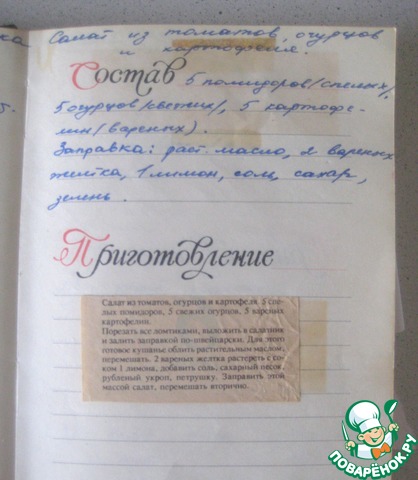 ка Салат из томатов, огурцов
и картофеля.
Состав 5 помидоров/спелых/,
5. 5 огурцов/свежих/, 5 картофе-
лин/вареных).
Заправка: раст. масло, 2 вареных
желтка, 1 лимон, соль, сахар,
зелень.
Приготовление
Салат из томатов, огурцов и картофеля. 5 спе-
лых помидоров, 5 свежих огурцов, 5 вареных
картофелин.
Порезать все ломтиками, выложить в салатник
и залить заправкой по-швейцарски. Для этого
готовое кушанье облить растительным маслом,
перемешать. 2 вареных желтка растереть с со-
ком 1 лимона, добавить соль, сахарный песок,
рубленый укроп, петрушку. Заправить этой
массой салат, перемешать вторично.
ПОВАРЁНОК.РУ